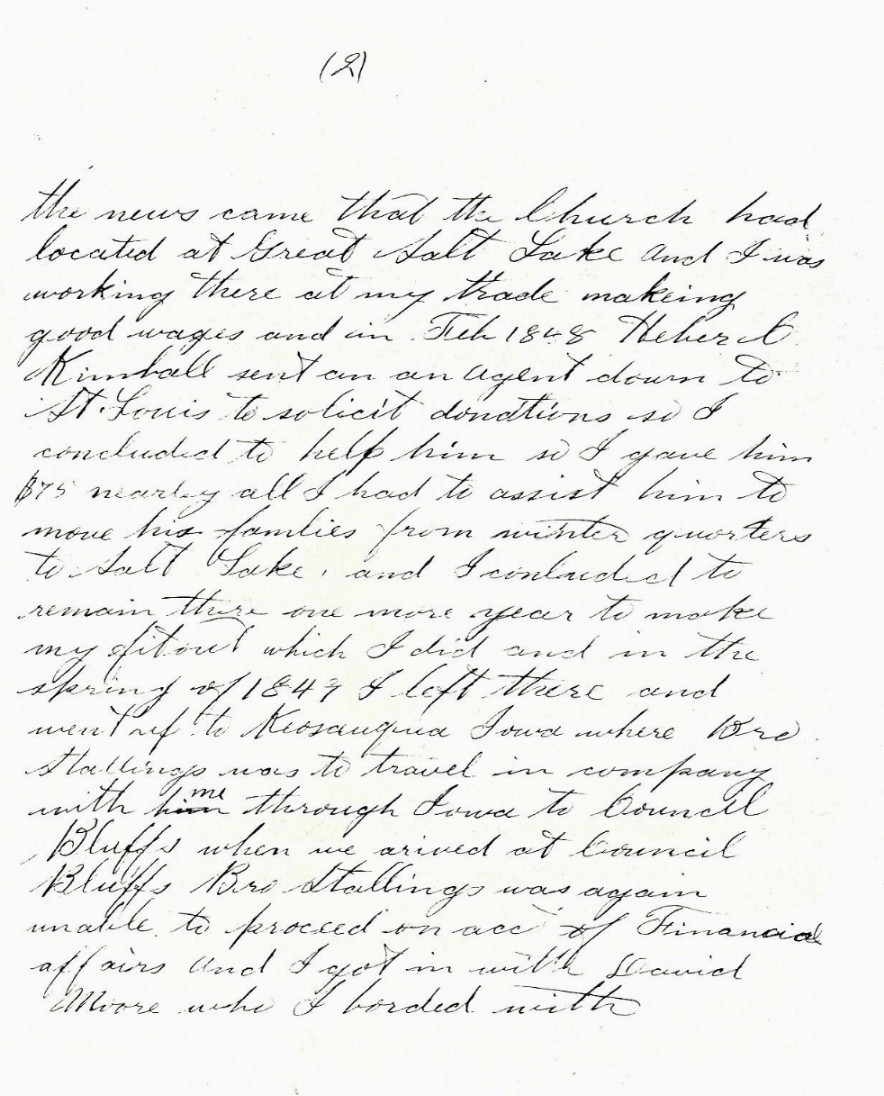 (2)
the news came that the Church had
located at Great Salt Lake and I was
working there at my trade makeing
good wages and in Feb 1848 Heber C
Kimball sent an an agent down to
St. Louis to solicit donations so I
concluded to help him so I gave him
$75 nearly all I had to assist him to
move his families from winter quarters
to Salt Lake. and I conluded to
remain there one more year to make
my fitout which I did and in the
spring of 1849 I left there and
went up to Keosauqua Iowa where Bro
Stallings was to travel in company
with him me through Iowa to Council
Bluffs when we arived at Council
Bluffs Bro Stallings was again
unable to proceed on acc of Financial
affairs and I got in with David
Moore who I borded with